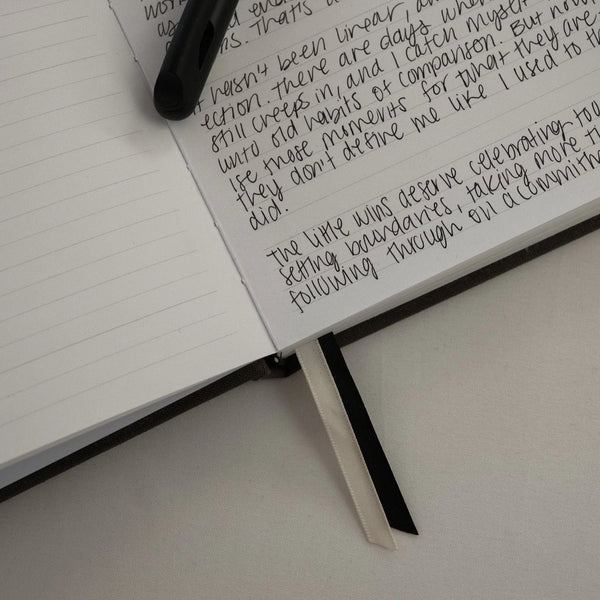 That's
hasn't been linear,
ection. There are days when
still creeps in, and I catch myself
unto old habits of comparison. But now
those moments for what they are
they don't define me like I used to
did.
The little wins deserve celebrating too
setting boundaries, taking more
following through on a commitm